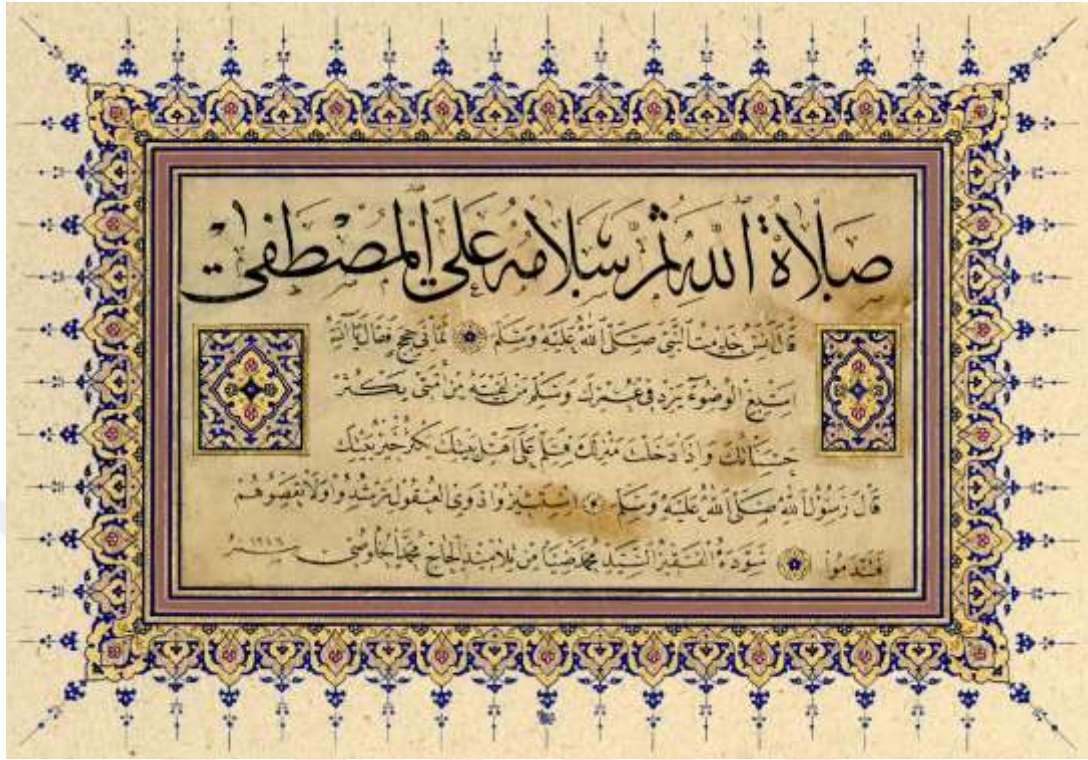 صلاة الله ثم سلامه على المصطفى
قال انس خدمت النبي صلى الله عليه وسلم ثماني حجج فقال يا انس
اسبغ الوضوء يزد في عمرك وسلم من لقيته من امتي يكثر
حسناتك واذا دخلت منزلك فسلم على اهل بيتك يكثر خير بيتك
قال رسول الله صلى الله عليه وسلم استشيروا ذوي العقول ترشدوا ولا تعصوهم
فتندموا سوده الفقير السيد محمد ضيا من تلاميذ الحاج محمد الخلوصي سنه